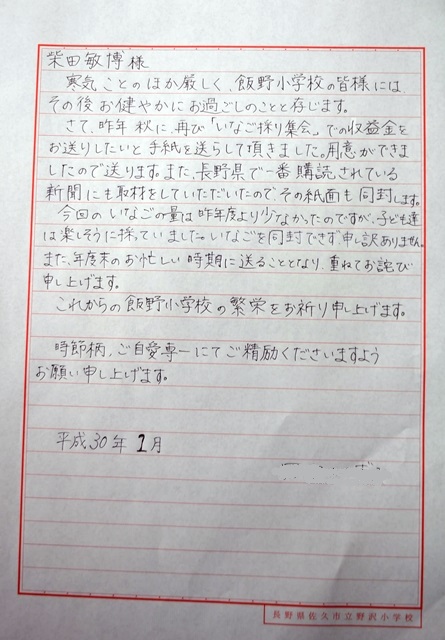 柴田敏博様
寒気ことのほか厳しく、飯野小学校の皆様には、
その後お健やかにお過ごしのことと存じます。
さて、昨年秋に、再び「いなご採り集会」での収益金を
お送りしたいと手紙を送らして頂きました。用意ができま
したので送ります。また、長野県で一番購読されている
新聞にも取材をしていただいたのでその紙面も同封します。
今回のいなごの量は昨年度より少なかったのですが、子ども達
は楽しそうに採っていました。いなごを同封できず申し訳ありません。
また、年度末のお忙しい時期に送ることとなり、重ねてお詫び
申し上げます。
これからの飯野小学校の繁栄をお祈り申し上げます。
時節柄、ご自愛専一にてご精励くださいますよう
お願い申し上げます。
平成30年2月
長野県佐久市立野沢小学校